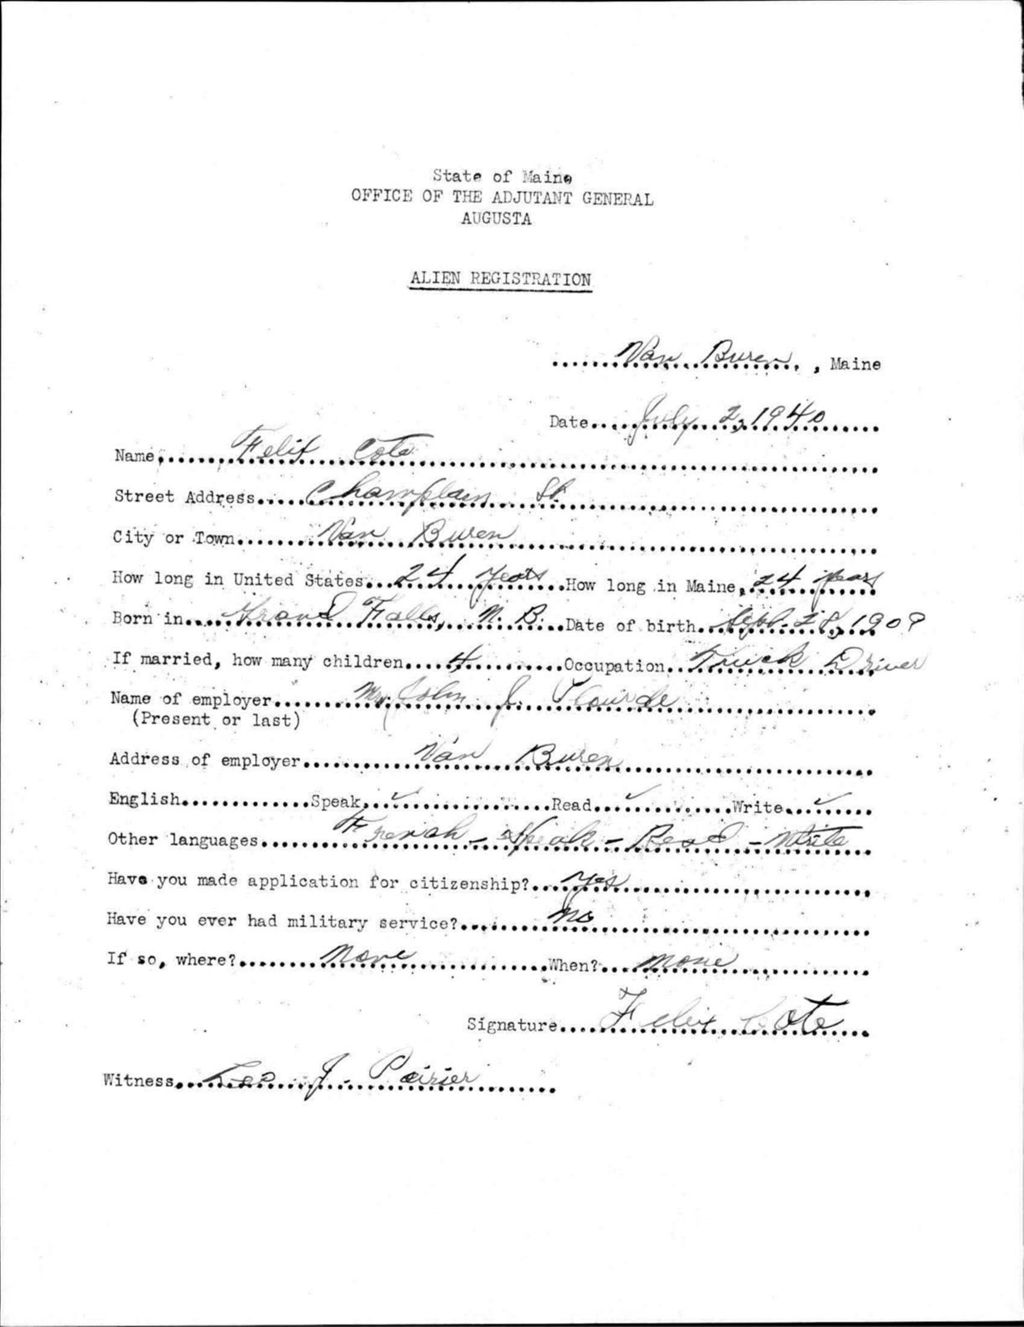 State of Maine
OFFICE OF THE ADJUTANT GENERAL
AUGUSTA
ALIEN REGISTRATION
Van Buren, Maine
Date July 2, 1940
Name Felix Cote
Street Address Champlain St
City or Town Van Buren
How long in United States 24 years How long in Maine 24 years
Born in Grand Falls, N. B. Date of birth Sept. 28, 1909
If married, how many children 4 Occupation Truck Driver
Name of employer Mr John J. Plourde
(Present or last)
Address of employer Van Buren
English Speak ✓ Read ✓ Write ✓
Other languages French - Speak - Read - Write
Have you made application for citizenship? Yes
Have you ever had military service? No
If so, where? None When? None
Signature Felix Cote
Witness Leo J. Poirier